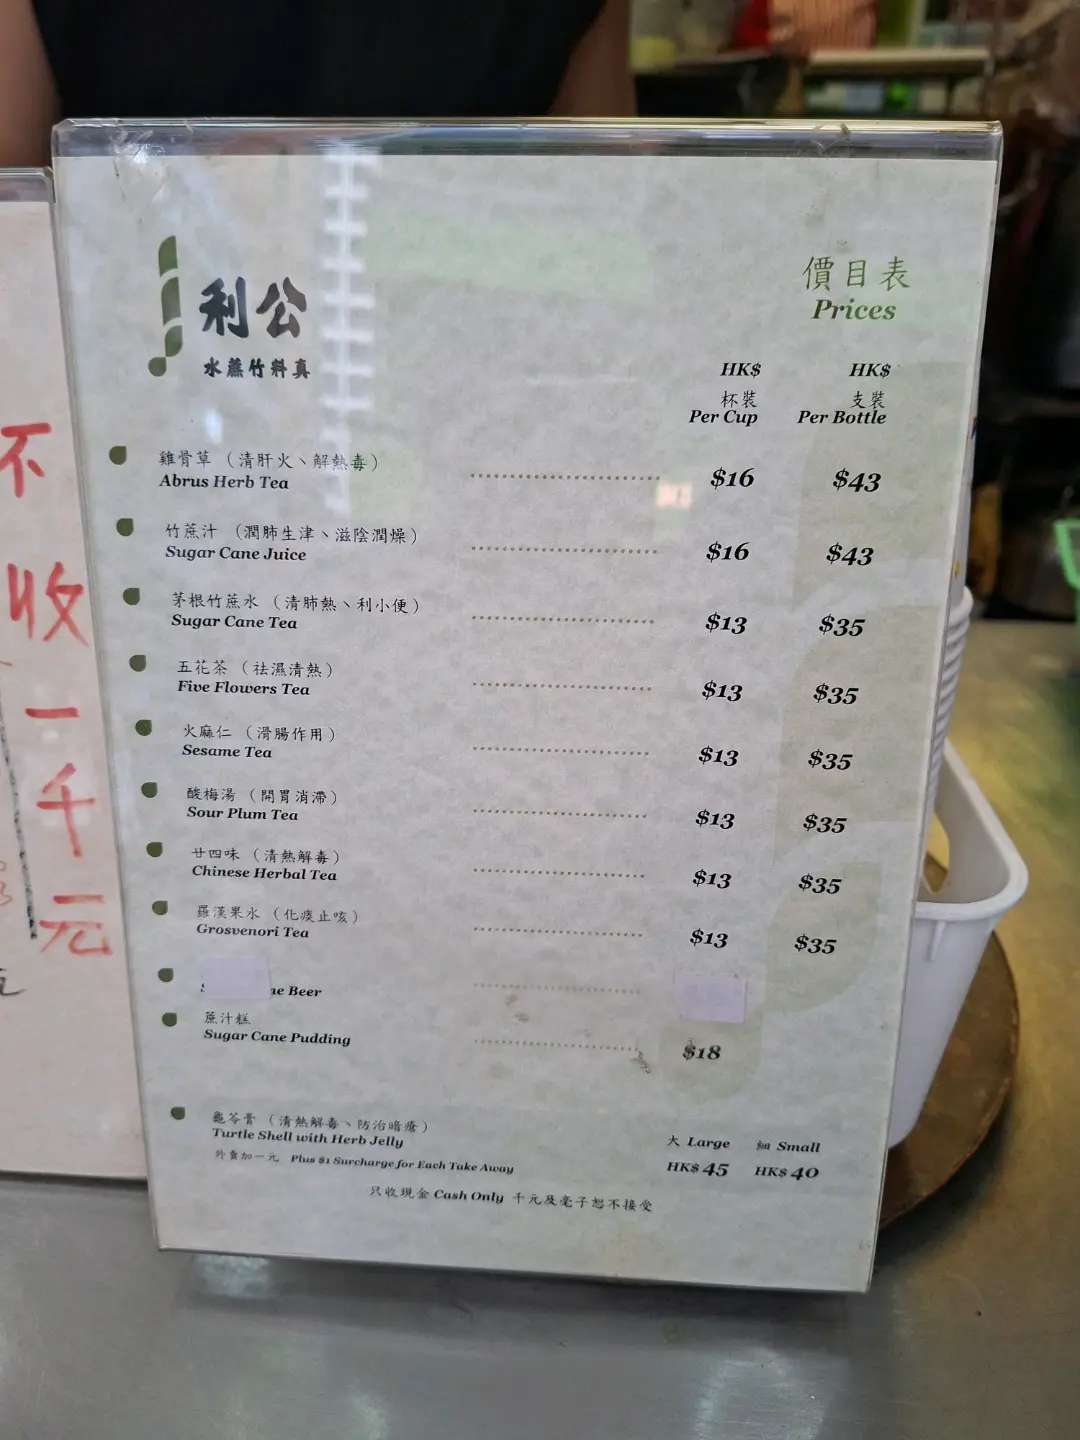 利公
水蔗竹料真
價目表
Prices
HK$ HK$
杯裝 支裝
Per Cup Per Bottle
雞骨草 （清肝火、解熱毒）
Abrus Herb Tea $16 $43
竹蔗汁 （潤肺生津、滋陰潤燥）
Sugar Cane Juice $16 $43
茅根竹蔗水 （清肺熱、利小便）
Sugar Cane Tea $13 $35
五花茶 （祛濕清熱）
Five Flowers Tea $13 $35
火麻仁 （滑腸作用）
Sesame Tea $13 $35
酸梅湯 （開胃消滯）
Sour Plum Tea $13 $35
廿四味 （清熱解毒）
Chinese Herbal Tea $13 $35
羅漢果水 （化痰止咳）
Grosvenori Tea $13 $35
ne Beer
蔗汁糕
Sugar Cane Pudding $18
龜苓膏 （清熱解毒、防治暗瘡）
Turtle Shell with Herb Jelly
大 Large 細 Small
外賣加一元 Plus $1 Surcharge for Each Take Away
HK$ 45 HK$ 40
只收現金 Cash Only 千元及毫子恕不接受
不收一千元